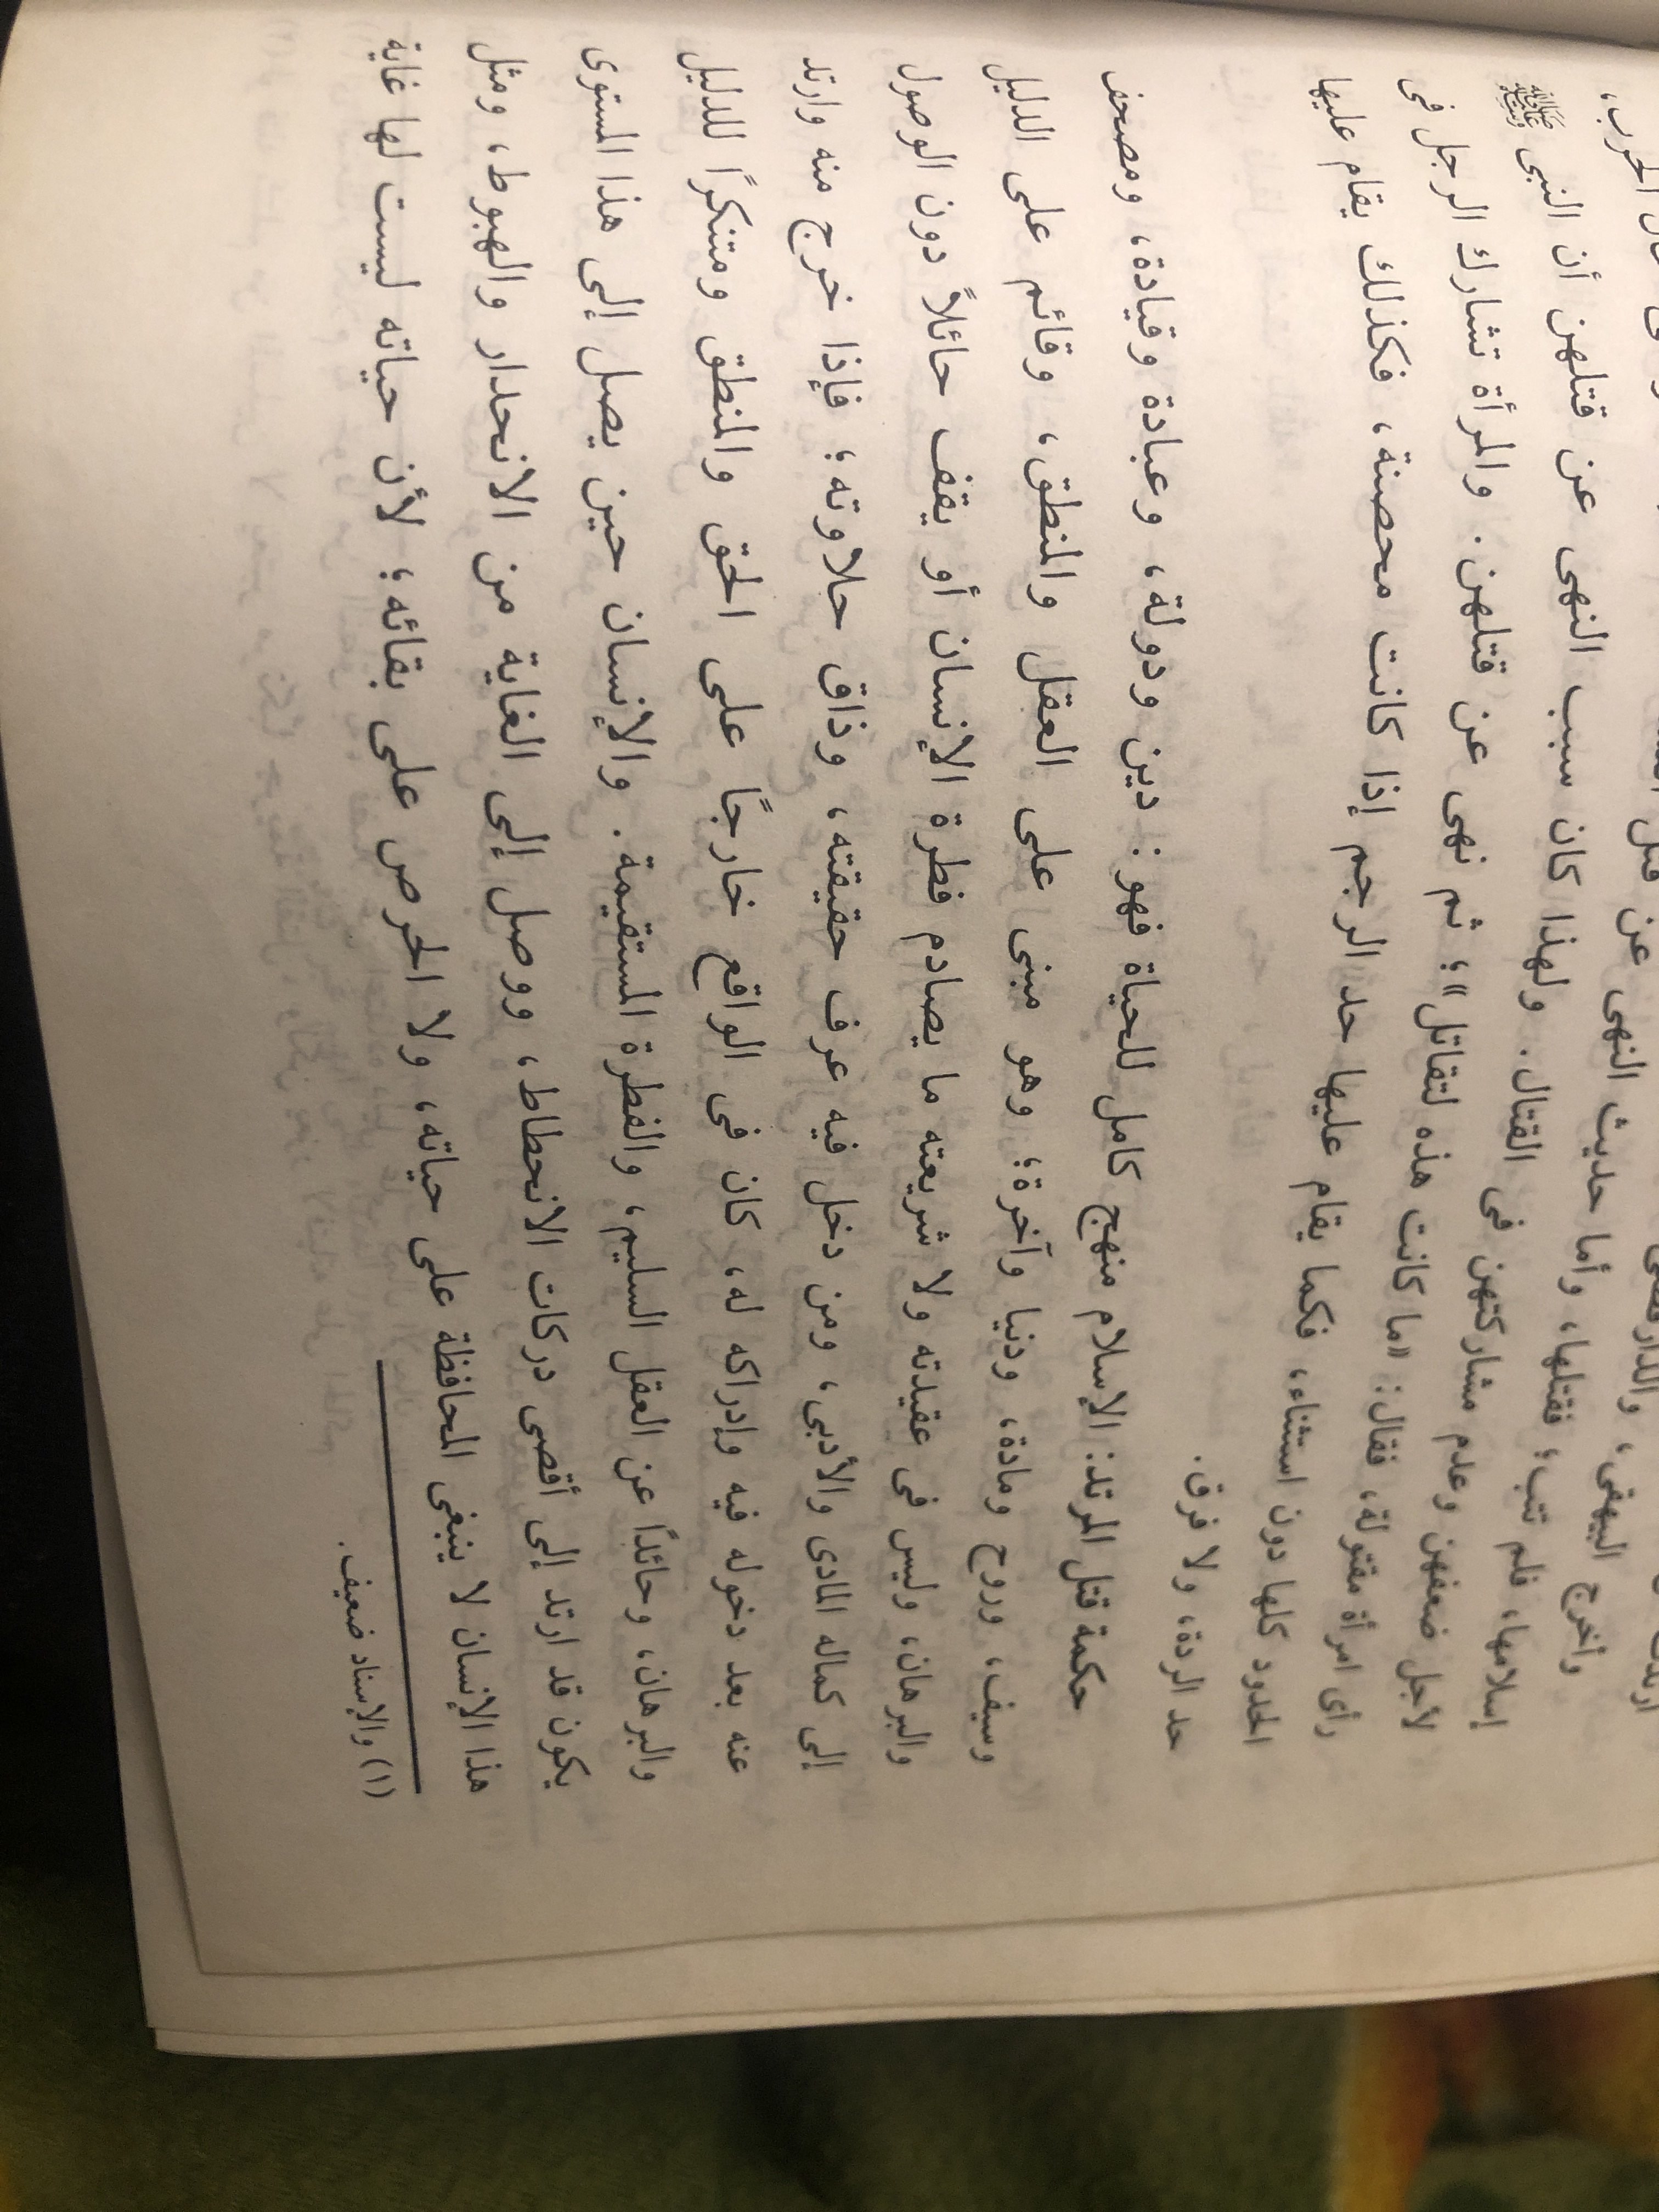 وأخرج البيهقى، والدارقطنى
إسلامها، فلم تتب؛ فقتلها، وأما حديث النهى عن قتل الحرب،
لأجل ضعفهن وعدم مشاركتهن فى القتال. ولهذا كان سبب النهى عن قتلهن أن النبى ﷺ
رأى امرأة مقتولة، فقال: «ما كانت هذه لتقاتل»؛ ثم نهى عن قتلهن. والمرأة تشارك الرجل فى
الحدود كلها دون استثناء، فكما يقام عليها حد الرجم إذا كانت محصنة، فكذلك يقام عليها
حد الردة، ولا فرق.
حكمة قتل المرتد: الإسلام منهج كامل للحياة فهو: دين ودولة، وعبادة وقيادة، ومصحف
وسيف، وروح ومادة، ودنيا وآخرة؛ وهو مبنى على العقل والمنطق، وقائم على الدليل
والبرهان، وليس فى عقيدته ولا شريعته ما يصادم فطرة الإنسان أو يقف حائلاً دون الوصول
إلى كماله المادى والأدبى، ومن دخل فيه عرف حقيقته، وذاق حلاوته؛ فإذا خرج منه وارتد
عنه بعد دخوله فيه وإدراكه له، كان فى الواقع خارجًا على الحق والمنطق ومتنكرًا للدليل
والبرهان، وحائدًا عن العقل السليم، والفطرة المستقيمة. والإنسان حين يصل إلى هذا المستوى
يكون قد ارتد إلى أقصى دركات الانحطاط، ووصل إلى الغاية من الانحدار والهبوط، ومثل
هذا الإنسان لا ينبغى المحافظة على حياته، ولا الحرص على بقائه؛ لأن حياته ليست لها غاية
(١) والإسناد ضعيف.